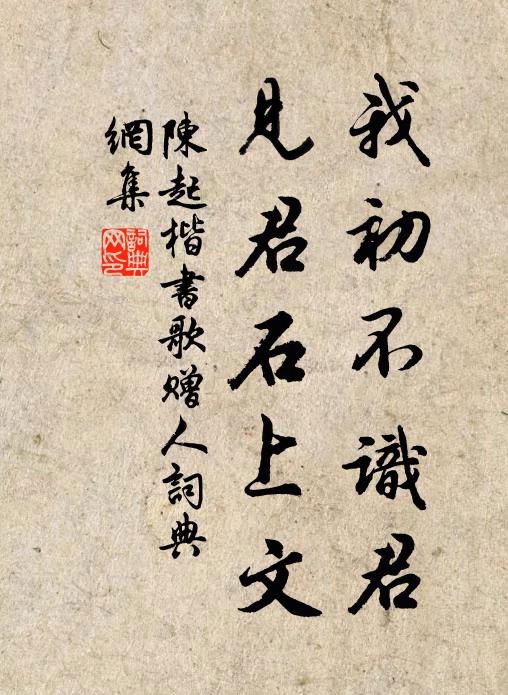 我初不識君
見君石上文
陳起楷書歌贈人詞典
網集
詞典
网印